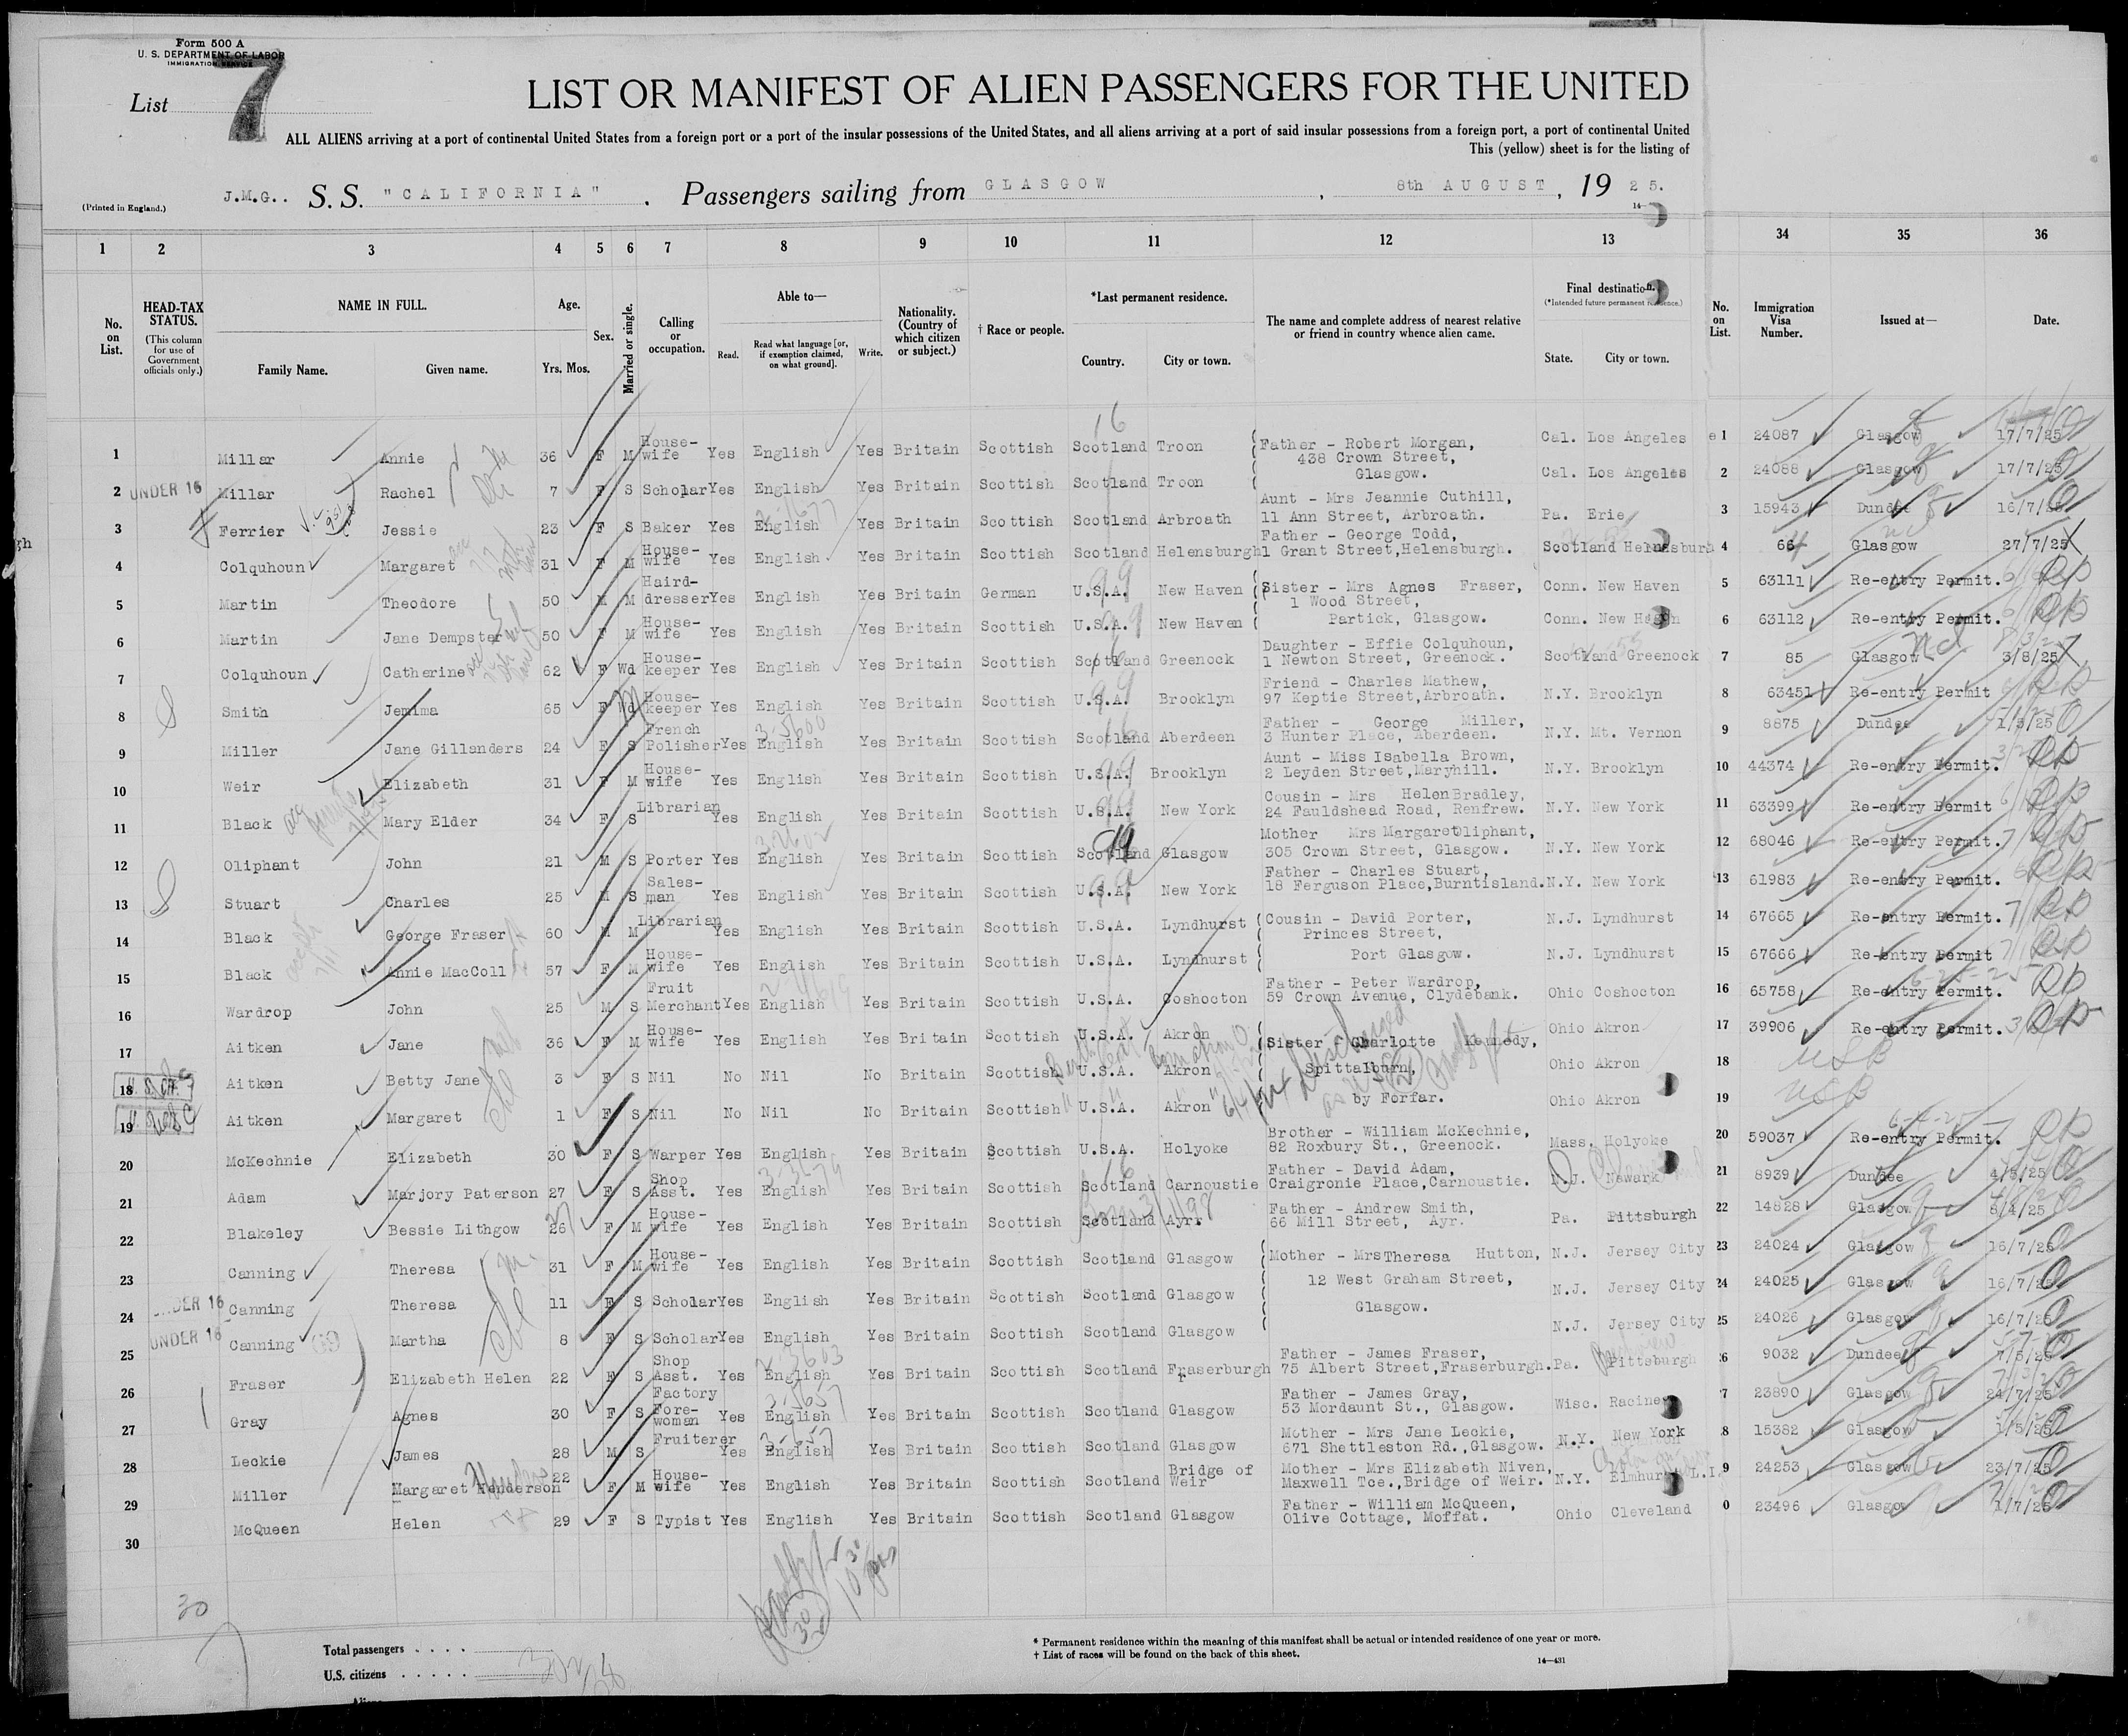 Form 500 A
U. S. DEPARTMENT OF LABOR
IMMIGRATION SERVICE
List 7
LIST OR MANIFEST OF ALIEN PASSENGERS FOR THE UNITED
ALL ALIENS arriving at a port of continental United States from a foreign port or a port of the insular possessions of the United States, and all aliens arriving at a port of said insular possessions from a foreign port, a port of continental United
This (yellow) sheet is for the listing of
(Printed in England.) J.M.G.. S. S. "CALIFORNIA" . Passengers sailing from GLASGOW , 8th AUGUST, 19 25.
1 2 3 4 5 6 7 8 9 10 11 12 13 34 35 36
No. on List. HEAD-TAX STATUS. (This column for use of Government officials only.) NAME IN FULL. Family Name. Given name. Age. Yrs. Mos. Sex. Married or single. Calling or occupation. Able to— Read. Read what language [or, if exemption claimed, on what ground]. Write. Nationality. (Country of which citizen or subject.) † Race or people. *Last permanent residence. Country. City or town. The name and complete address of nearest relative or friend in country whence alien came. Final destination. (*Intended future permanent residence.) State. City or town. No. on List. Immigration Visa Number. Issued at— Date.
1 Millar Annie 36 F M House-wife Yes English Yes Britain Scottish Scotland Troon Father - Robert Morgan, 438 Crown Street, Glasgow. Cal. Los Angeles 1 24087 Glasgow 17/7/25
2 UNDER 16 Millar Rachel 7 F S Scholar Yes English Yes Britain Scottish Scotland Troon Cal. Los Angeles 2 24088 Glasgow 17/7/25
3 Ferrier Jessie 23 F S Baker Yes English Yes Britain Scottish Scotland Arbroath Aunt - Mrs Jeannie Cuthill, 11 Ann Street, Arbroath. Pa. Erie 3 15943 Dundee 16/7/25
4 Colquhoun Margaret 31 F M House-wife Yes English Yes Britain Scottish Scotland Helensburgh Father - George Todd, 1 Grant Street,Helensburgh. Scotland 4 Glasgow 27/7/25
5 Martin Theodore 50 M M Haird-dresser Yes English Yes Britain German U.S.A. New Haven Sister - Mrs Agnes Fraser, 1 Wood Street, Partick, Glasgow. Conn. New Haven 5 63111 Re-entry Permit.
6 Martin Jane Dempster 50 F M House-wife Yes English Yes Britain Scottish U.S.A. New Haven Conn. New Haven 6 63112 Re-entry Permit.
7 Colquhoun Catherine 62 F Wd House-keeper Yes English Yes Britain Scottish Scotland Greenock Daughter - Effie Colquhoun, 1 Newton Street, Greenock. Scotland Greenock 7 85 Glasgow 3/8/25
8 Smith Jemima 65 F Wd House-keeper Yes English Yes Britain Scottish U.S.A. Brooklyn Friend - Charles Mathew, 97 Keptie Street,Arbroath. N.Y. Brooklyn 8 63451 Re-entry Permit
9 Miller Jane Gillanders 24 F S French Polisher Yes English Yes Britain Scottish Scotland Aberdeen Father - George Miller, 3 Hunter Place, Aberdeen. N.Y. Mt. Vernon 9 8875 Dundee 1/5/25
10 Weir Elizabeth 31 F M House-wife Yes English Yes Britain Scottish U.S.A. Brooklyn Aunt - Miss Isabella Brown, 2 Leyden Street,Maryhill. N.Y. Brooklyn 10 44374 Re-entry Permit.
11 Black Mary Elder 34 F S Librarian Yes English Yes Britain Scottish U.S.A. New York Cousin - Mrs Helen Bradley, 24 Fauldshead Road, Renfrew. N.Y. New York 11 63399 Re-entry Permit
12 Oliphant John 21 M S Porter Yes English Yes Britain Scottish Scotland Glasgow Mother Mrs Margaret Oliphant, 305 Crown Street, Glasgow. N.Y. New York 12 68046 Re-entry Permit.
13 Stuart Charles 25 M S Sales-man Yes English Yes Britain Scottish U.S.A. New York Father - Charles Stuart, 18 Ferguson Place,Burntisland. N.Y. New York 13 61983 Re-entry Permit.
14 Black George Fraser 60 M M Librarian Yes English Yes Britain Scottish U.S.A. Lyndhurst Cousin - David Porter, Princes Street, Port Glasgow. N.J. Lyndhurst 14 67665 Re-entry Permit.
15 Black Annie MacColl 57 F M House-wife Yes English Yes Britain Scottish U.S.A. Lyndhurst N.J. Lyndhurst 15 67666 Re-entry Permit
16 Wardrop John 25 M S Fruit Merchant Yes English Yes Britain Scottish U.S.A. Coshocton Father - Peter Wardrop, 59 Crown Avenue, Clydebank. Ohio Coshocton 16 65758 Re-entry Permit. 6-25-25
17 Aitken Jane 36 F M House-wife Yes English Yes Britain Scottish U.S.A. Akron Sister - Charlotte Kennedy, Spittalburn, by Forfar. Ohio Akron 17 39906 Re-entry Permit.
18 Aitken Betty Jane 3 F S Nil No Nil No Britain Scottish U.S.A. Akron Ohio Akron 18 USB
19 Aitken Margaret 1 F S Nil No Nil No Britain Scottish U.S.A. Akron Ohio Akron 19 USB
20 McKechnie Elizabeth 30 F S Warper Yes English Yes Britain Scottish U.S.A. Holyoke Brother - William McKechnie, 82 Roxbury St., Greenock. Mass. Holyoke 20 59037 Re-entry Permit.
21 Adam Marjory Paterson 27 F S Shop Asst. Yes English Yes Britain Scottish Scotland Carnoustie Father - David Adam, Craigronie Place,Carnoustie. N.J. Newark 21 8939 Dundee 4/5/25
22 Blakeley Bessie Lithgow 26 F M House-wife Yes English Yes Britain Scottish Scotland Ayr Father - Andrew Smith, 66 Mill Street, Ayr. Pa. Pittsburgh 22 14828 Glasgow
23 Canning Theresa 31 F M House-wife Yes English Yes Britain Scottish Scotland Glasgow Mother - Mrs Theresa Hutton, 12 West Graham Street, Glasgow. N.J. Jersey City 23 24024 Glasgow 16/7/25
24 UNDER 16 Canning Theresa 11 F S Scholar Yes English Yes Britain Scottish Scotland Glasgow N.J. Jersey City 24 24025 Glasgow 16/7/25
25 UNDER 16 Canning Martha 8 F S Scholar Yes English Yes Britain Scottish Scotland Glasgow N.J. Jersey City 25 24026 Glasgow 16/7/25
26 Fraser Elizabeth Helen 22 F S Shop Asst. Yes English Yes Britain Scottish Scotland Fraserburgh Father - James Fraser, 75 Albert Street,Fraserburgh. Pa. Pittsburgh 6 9032 Dundee 7/5/25
27 Gray Agnes 30 F S Factory Fore-woman Yes English Yes Britain Scottish Scotland Glasgow Father - James Gray, 53 Mordaunt St., Glasgow. Wisc. Racine 7 23890 Glasgow 24/7/25
28 Leckie James 28 M S Fruiterer Yes English Yes Britain Scottish Scotland Glasgow Mother - Mrs Jane Leckie, 671 Shettleston Rd.,Glasgow. N.Y. New York 8 15382 Glasgow
29 Miller Margaret Henderson 22 F M House-wife Yes English Yes Britain Scottish Scotland Bridge of Weir Mother - Mrs Elizabeth Niven, Maxwell Tce.,Bridge of Weir. N.Y. Elmhurst L.I. 9 24253 Glasgow 23/7/25
30 McQueen Helen 29 F S Typist Yes English Yes Britain Scottish Scotland Glasgow Father - William McQueen, Olive Cottage, Moffat. Ohio Cleveland 0 23496 Glasgow 1/7/25
30
Total passengers . . . .
U.S. citizens . . . . .
* Permanent residence within the meaning of this manifest shall be actual or intended residence of one year or more.
† List of races will be found on the back of this sheet.
14—431